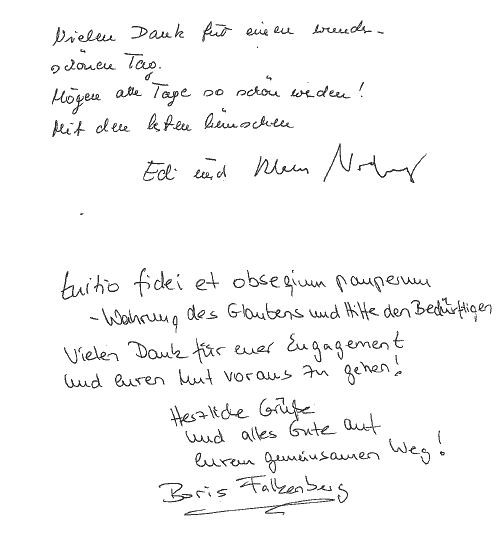 Vielen Dank für einen wunder-
schönen Tag.
Mögen alle Tage so schön werden!
Mit den besten Wünschen
Edi und Klaus
tuitio fidei et obsequium pauperum
- Wahrung des Glaubens und Hilfe den Bedürftigen
Vielen Dank für euer Engagement
und euren Mut voraus zu gehen!
Herzliche Grüße
und alles Gute auf
eurem gemeinsamen Weg!
Boris Falkenberg